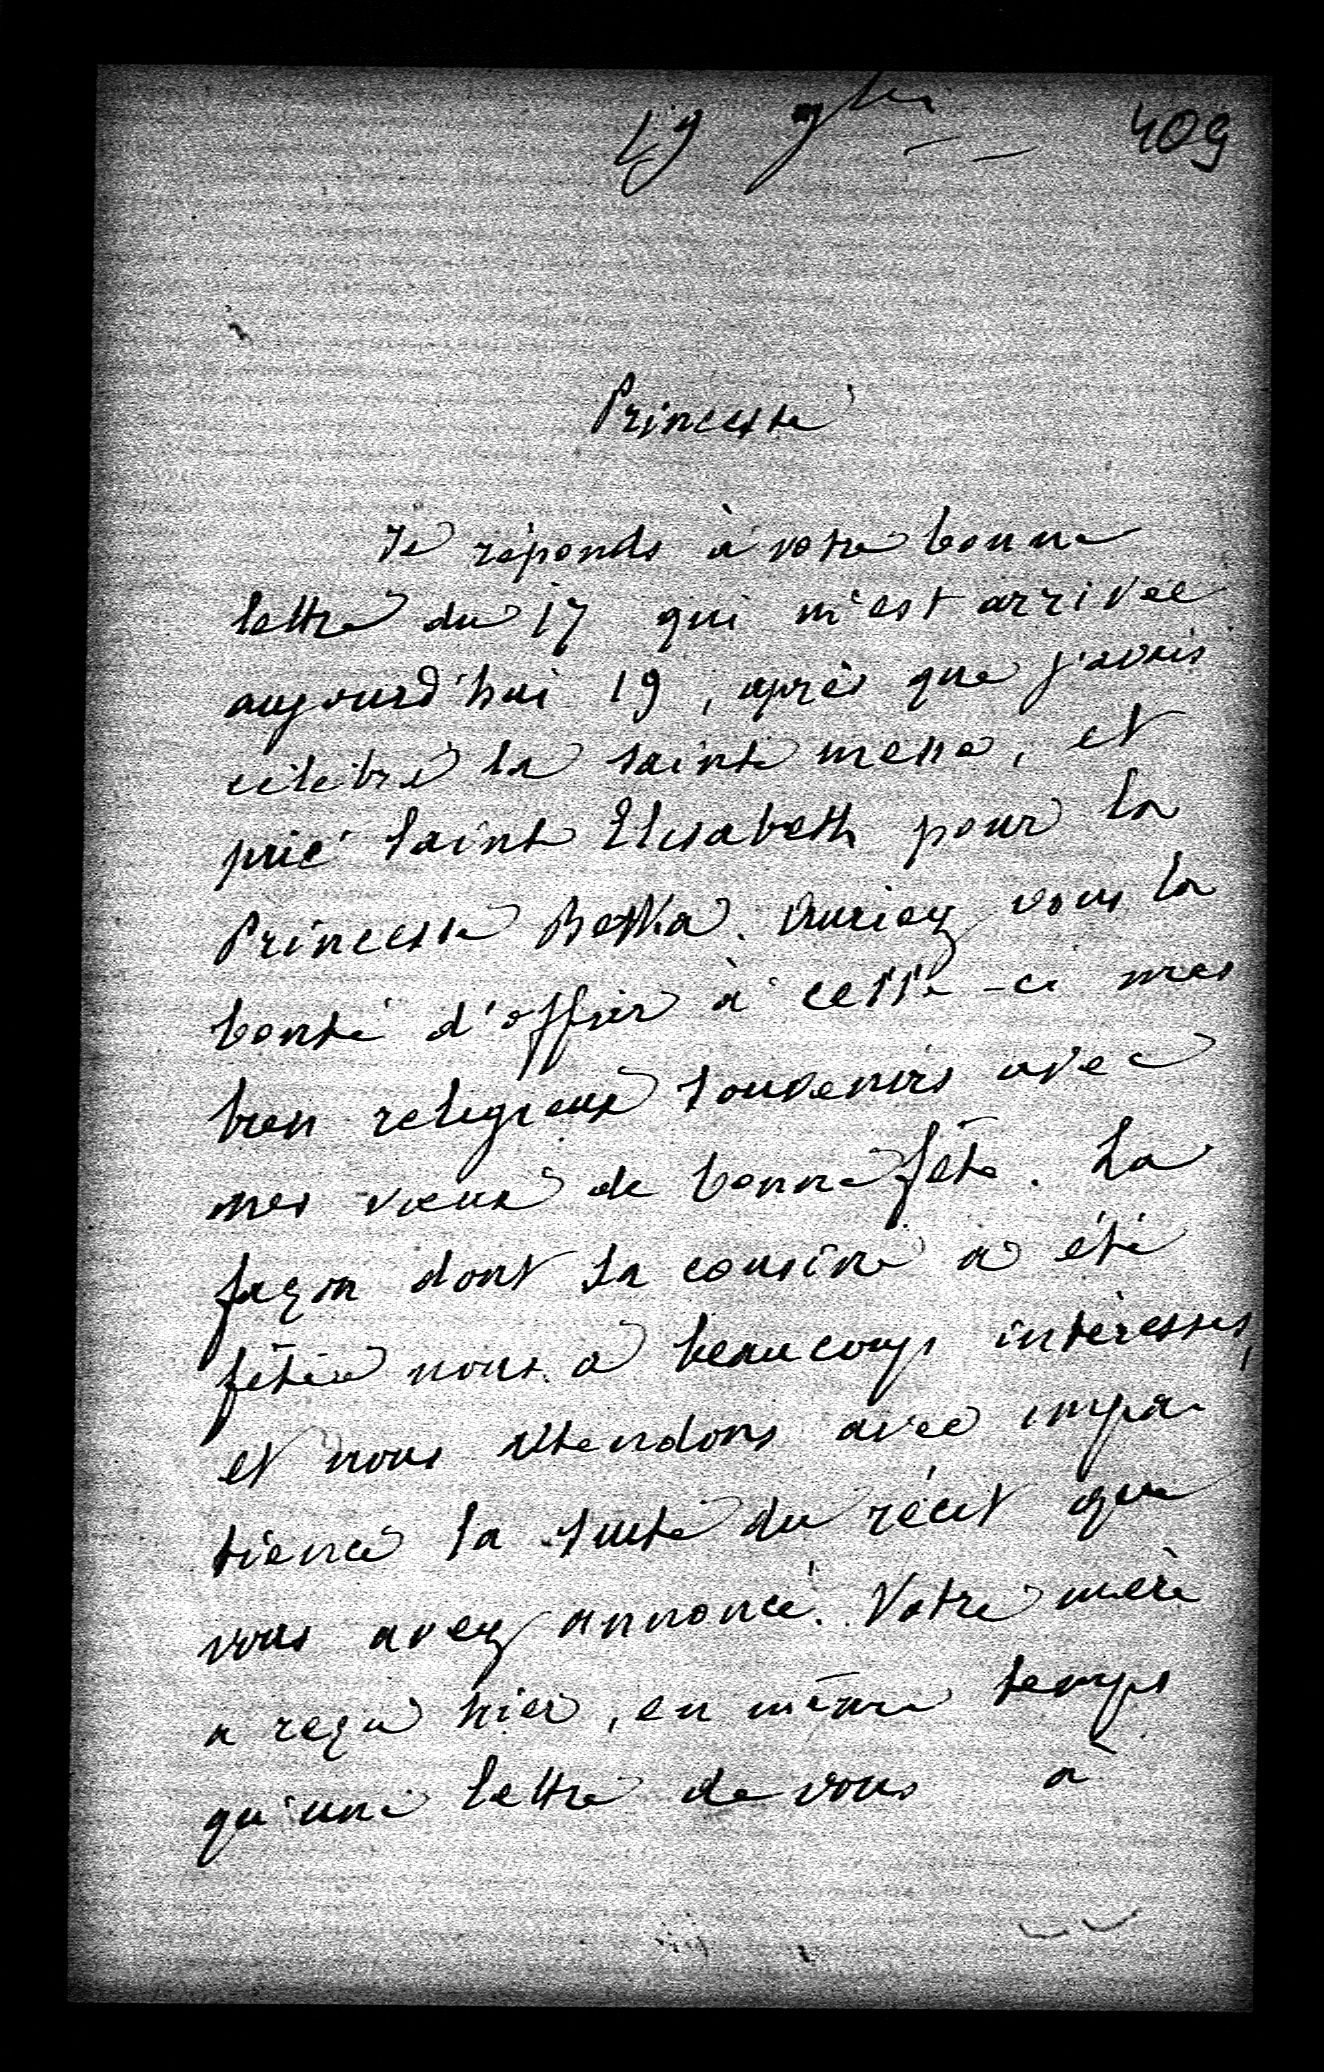 19 9bre 409
Princesse
Je réponds à votre bonne
lettre du 17 qui m'est arrivée
aujourd'hui 19, après que j'avais
célébré la sainte messe, et
prié Sainte Elisabeth pour la
Princesse Betka. Auriez vous la
bonté d'offrir à celle-ci mes
bien religieux souvenirs avec
mes vœux de bonne fête. La
façon dont sa cousine a été
fêtée nous a beaucoup intéressés,
et nous attendons avec impa-
tience la suite du récit que
vous avez annoncé. Votre mère
a reçu hier, en même temps
qu'une lettre de vous à